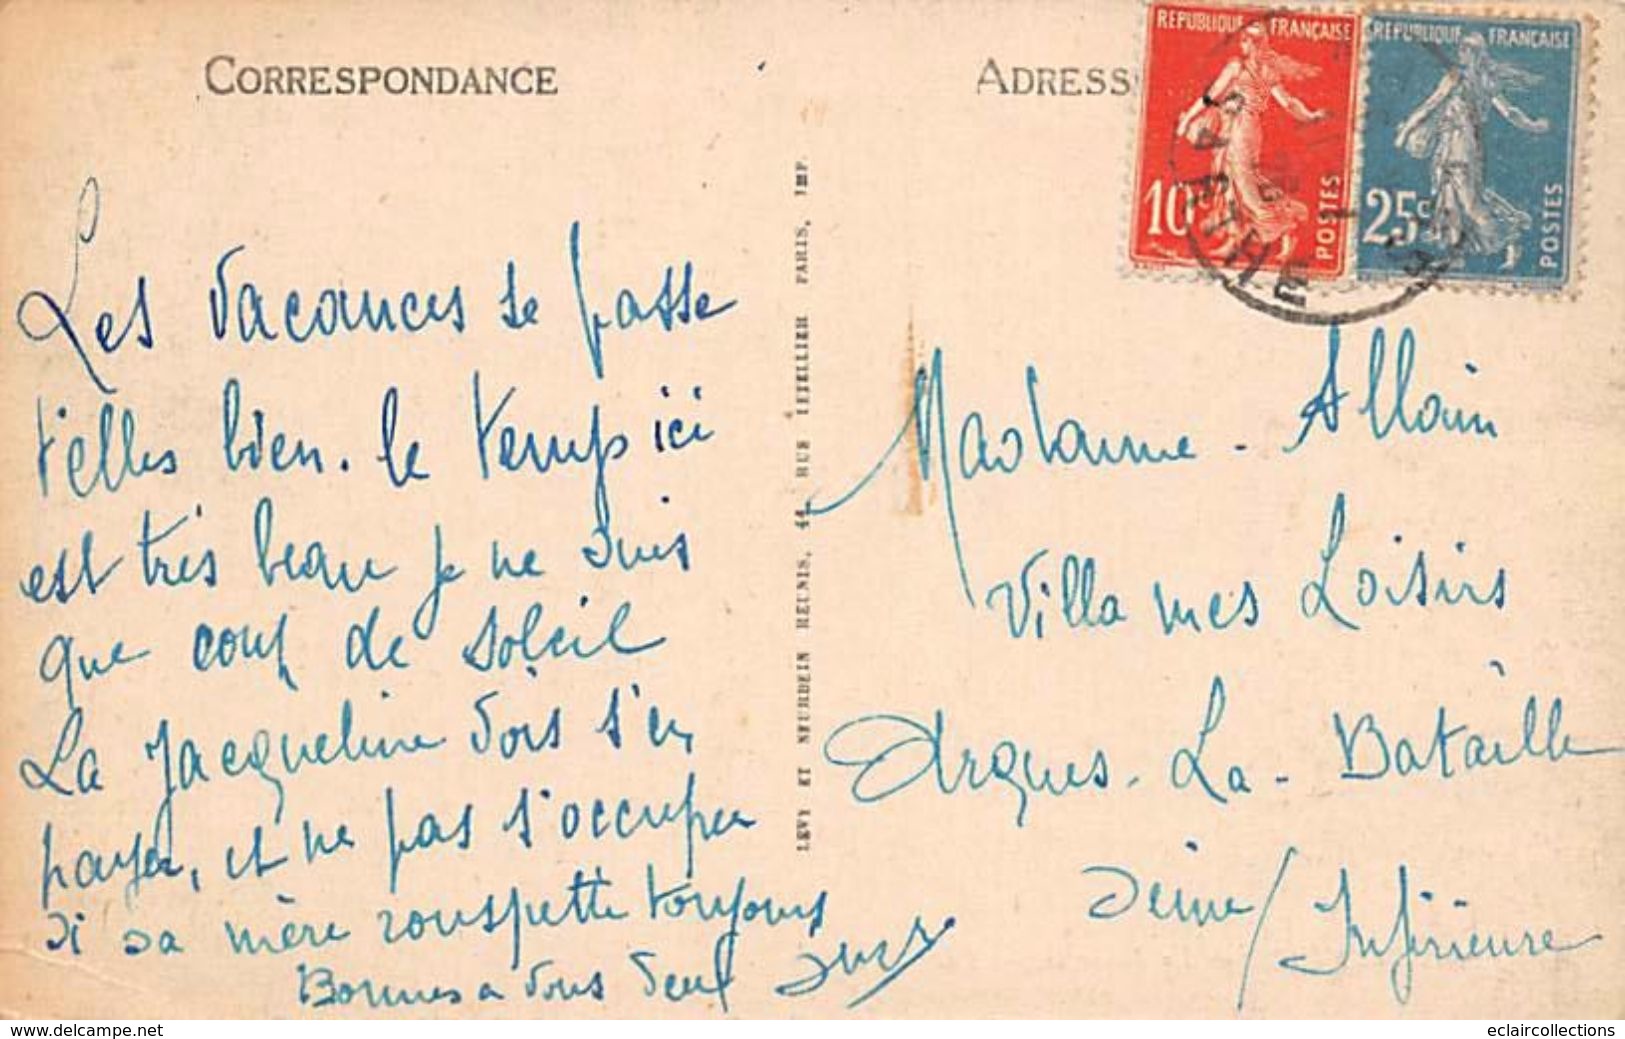 CORRESPONDANCE
Les vacances se passe
t'elles bien. le temps ici
est très beau je ne suis
que coup de soleil
La Jacqueline dois s'en
payer, et ne pas s'occuper
si sa mère rouspette toujours
Bonnes a vous deux
LEVY ET NEURDEIN REUNIS, 44, RUE LETELLIER PARIS, IMP.
ADRESS
REPUBLIQUE FRANÇAISE
10c
POSTES
REPUBLIQUE FRANÇAISE
25c
POSTES
Madame - Allain
Villa mes Loisirs
Arques - La - Bataille
Seine / Inférieure
www.delcampe.net
eclaircollections